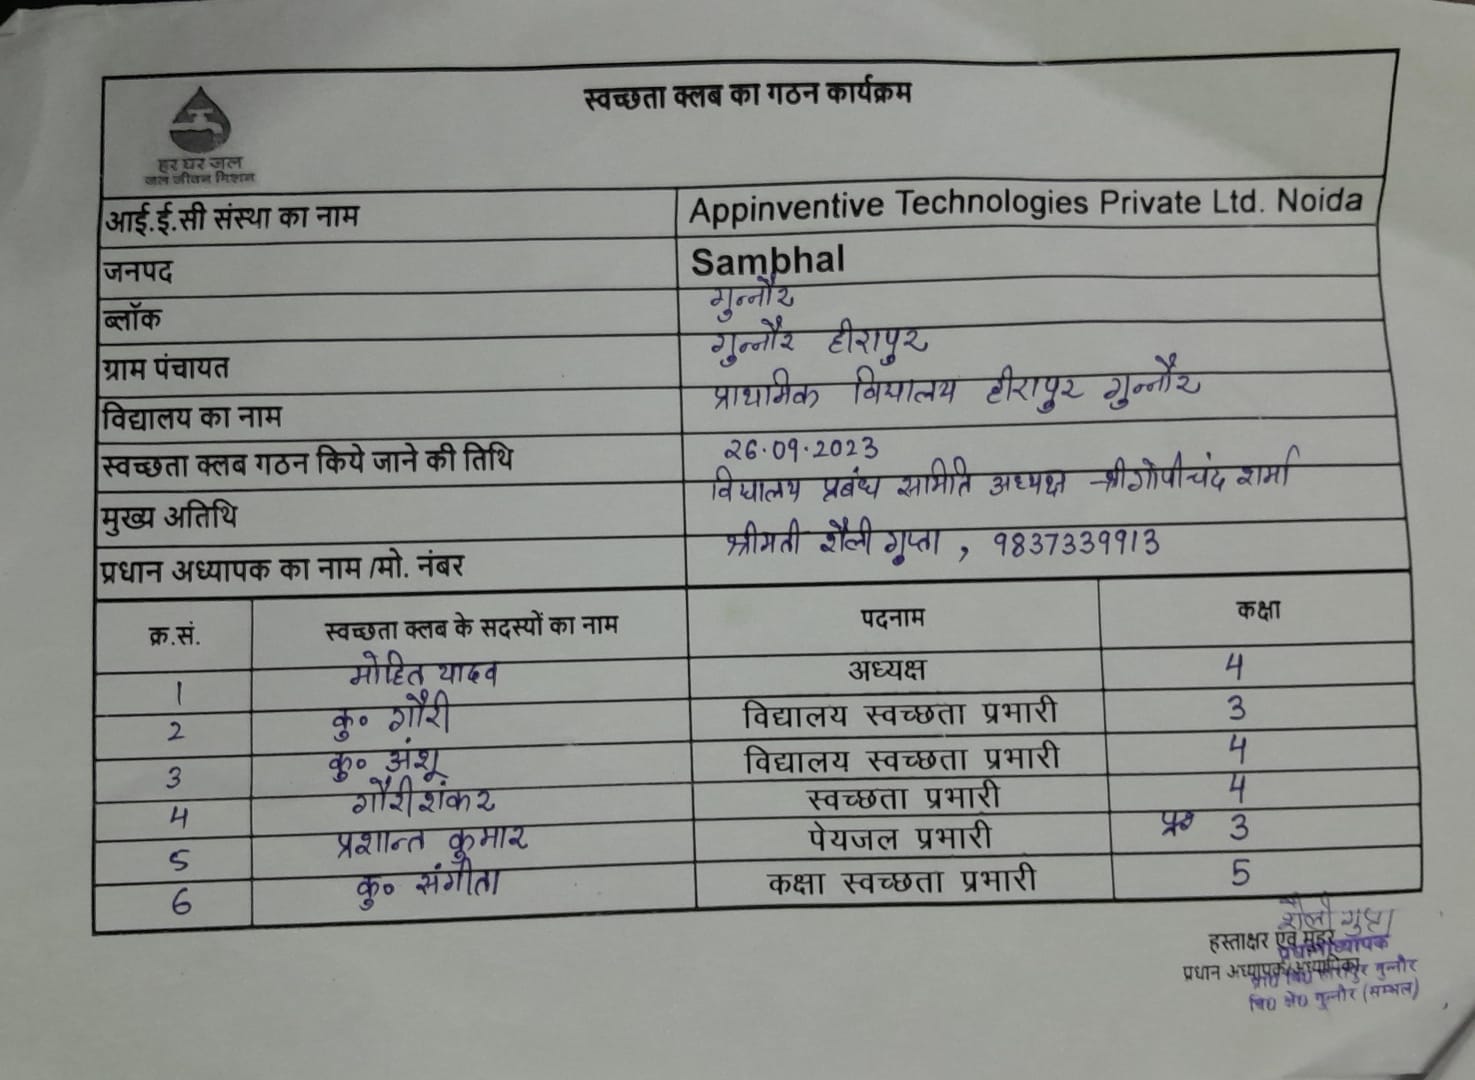 स्वच्छता क्लब का गठन कार्यक्रम
हर घर जल
जल जीवन मिशन
आई.ई.सी संस्था का नाम Appinventive Technologies Private Ltd. Noida
जनपद Sambhal
ब्लॉक गुन्नौर
ग्राम पंचायत गुन्नौर हीरापुर
विद्यालय का नाम प्राथमिक विद्यालय हीरापुर गुन्नौर
स्वच्छता क्लब गठन किये जाने की तिथि 26.09.2023
मुख्य अतिथि विद्यालय प्रबंध समिति अध्यक्ष श्री गोपीचंद शर्मा
प्रधान अध्यापक का नाम /मो. नंबर श्रीमती शैली गुप्ता , 9837339913
क्र.सं. स्वच्छता क्लब के सदस्यों का नाम पदनाम कक्षा
1 मोहित यादव अध्यक्ष 4
2 कु० गौरी विद्यालय स्वच्छता प्रभारी 3
3 कु० अंशू विद्यालय स्वच्छता प्रभारी 4
4 गौरीशंकर स्वच्छता प्रभारी 4
5 प्रशान्त कुमार पेयजल प्रभारी 3
6 कु० संगीता कक्षा स्वच्छता प्रभारी 5
शैली गुप्ता
हस्ताक्षर एवं मुहर
प्रधानाध्यापक
प्रधान अध्यापक/अध्यापिका
प्रा० वि० हीरापुर गुन्नौर
वि० क्षे० गुन्नौर (सम्भल)